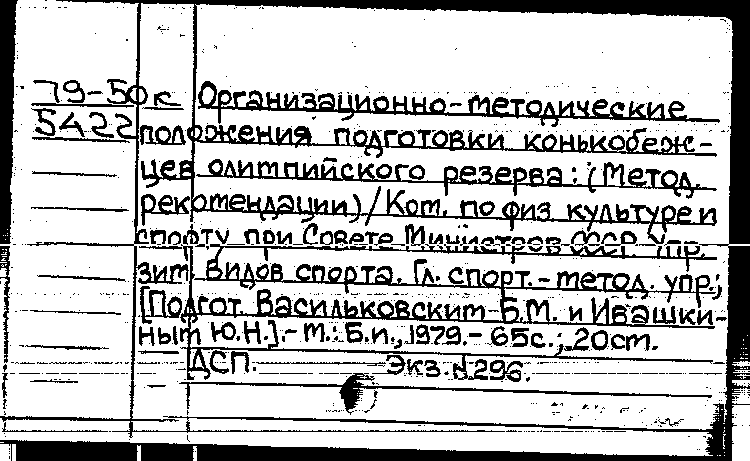 79-50к Организационно-методические
5422 положения подготовки конькобеж-
цев олимпийского резерва: (Метод.
рекомендации) / Ком. по физ культуре и
спорту при Совете Министров СССР. Упр.
зим. видов спорта. Гл. спорт.-метод. упр.;
[Подгот. Васильковским Б.М. и Ивашки-
ным Ю.Н.].- М.: Б.и., 1979.- 65с.; 20см.
ДСП. Экз.N296.